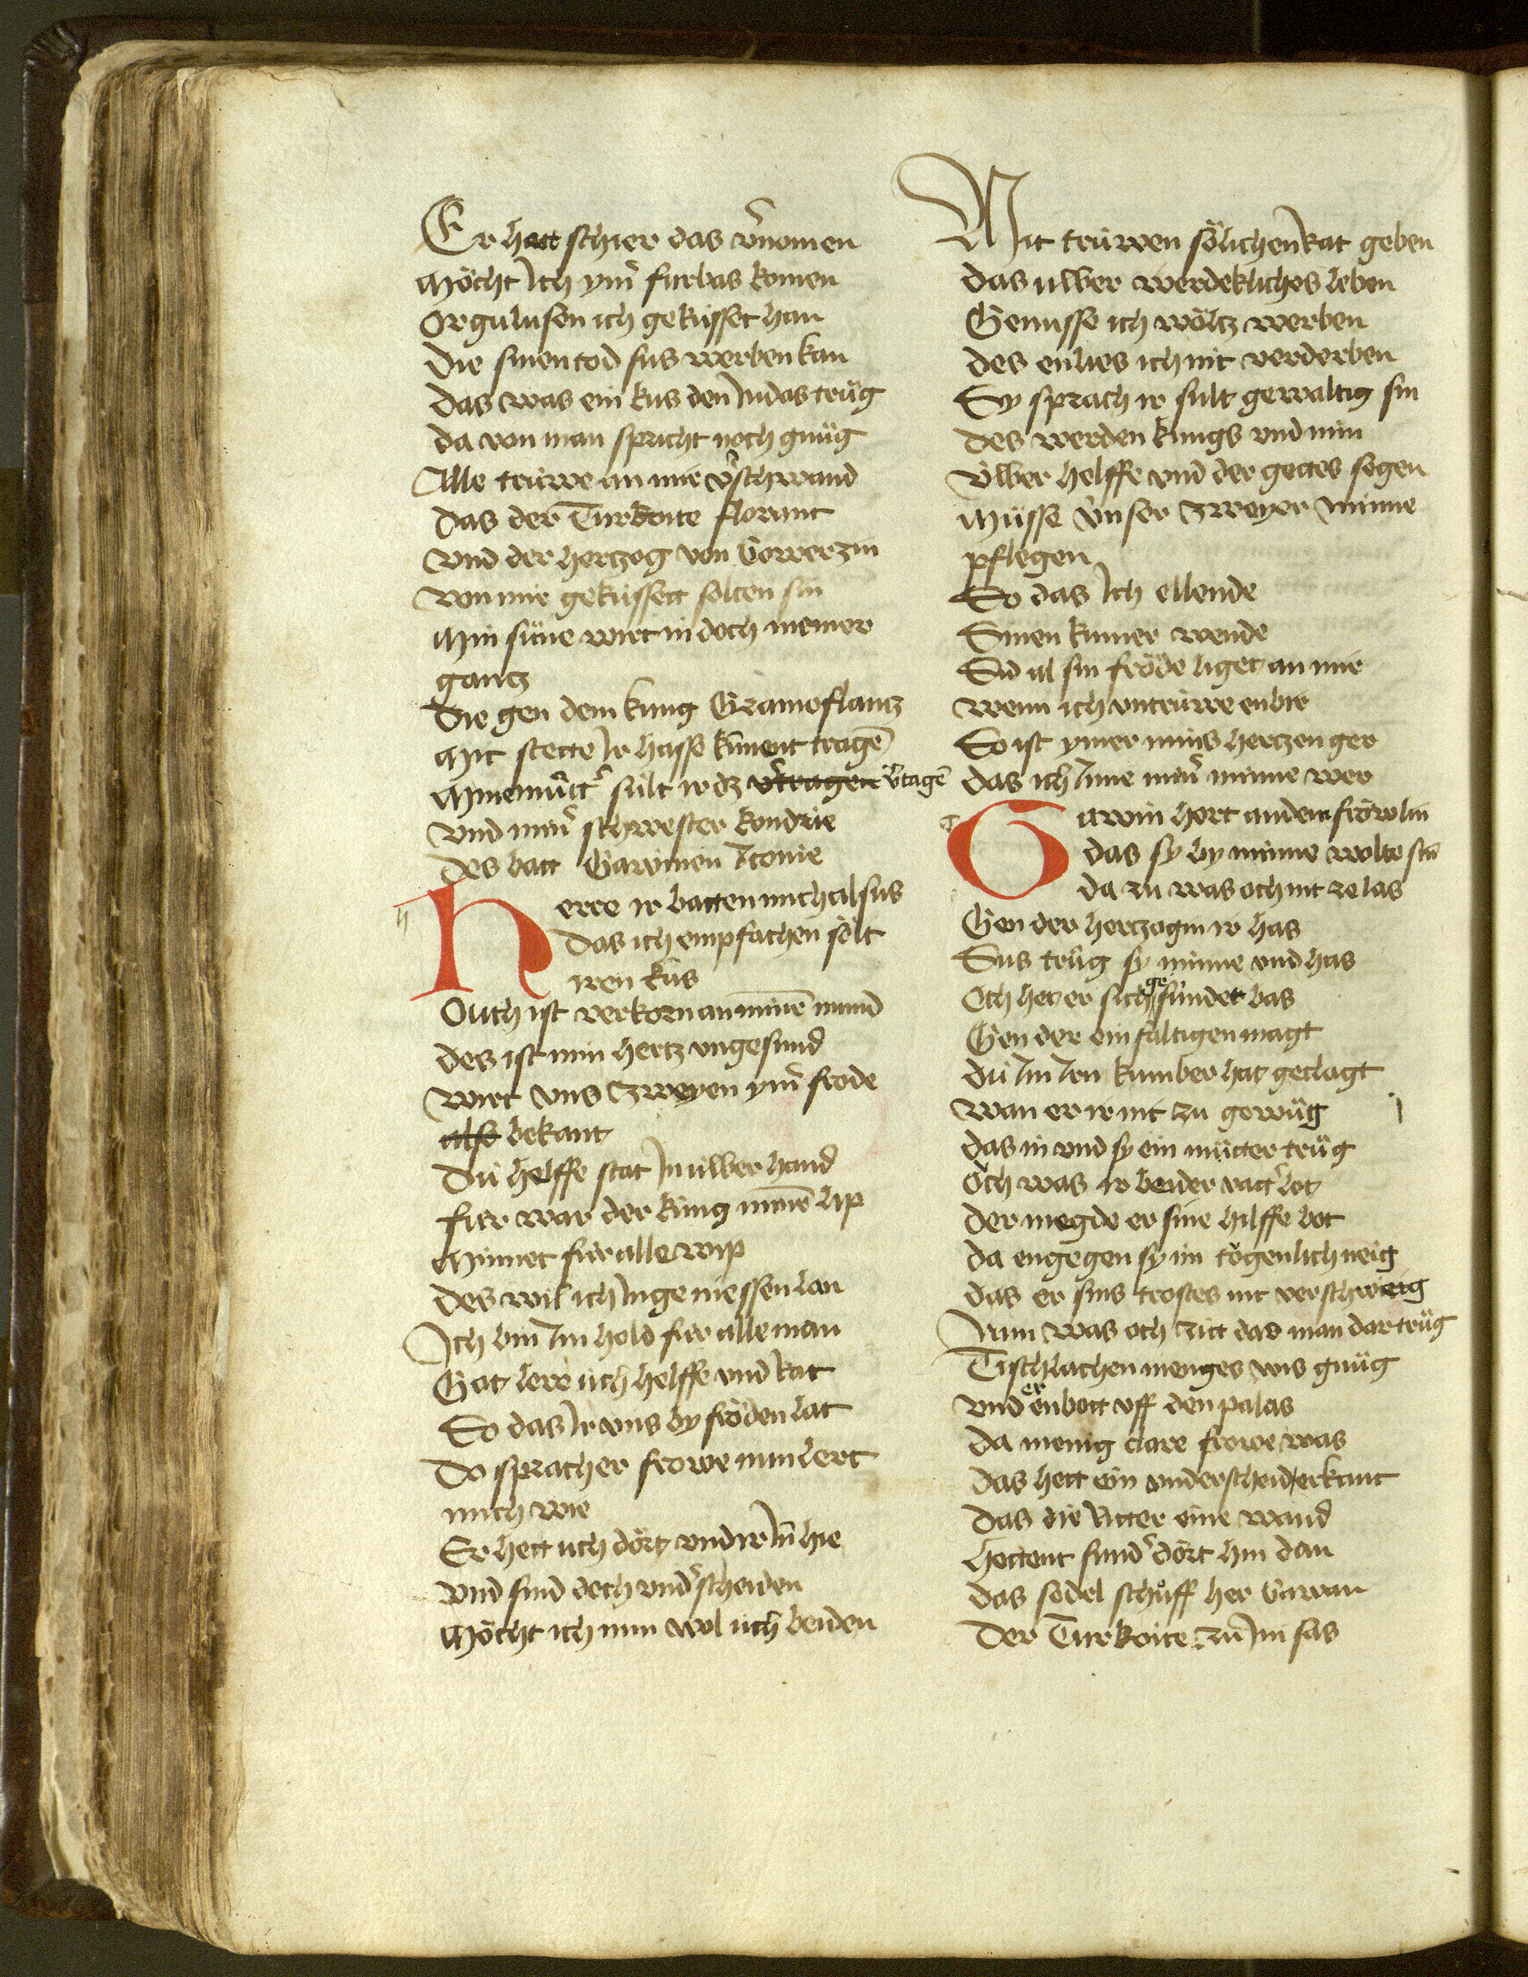 Er hatt schier das v̉nomen
Möcht Ich ym̉ furbas komen
Orgulusen ich geküsset han
Die sinen tod sus werben kan
Das was ein kus den Judas trůg
da von man spricht noch gnůg
Alle trüwe an mir v̉schwand
Das der Turkoite florant
Vnd der hertzog von Gowerzin
Von mir geküssett solten sin
Min sůne wirt in doch niemer
gantz
Die gen dem kung Gramoflantz
Mit stette Ir hasse kunent tragē
Min můtt̉ sult ir dz v̉tragen v̉tagē
Vnd min̉ schwester kondrie
Des batt Gawinen Itonie
Herre ir batten mich alsus
Das ich empfachen sölt
iren kus
Ouch ist verkorn an minē mund
des ist min hertz vngesund
Wirt vns zweyen ym̉ frode
also bekant
Dü helffe stat In üwer hand
fur war der küng minē lip
Minnet für alle wip
des wil ich In geniessen lan
Ich bin Im hold für alle man
Got lere üch helffe vnd Rat
So das Ir vns by fröden lat
Do sprach er frowe nun lert
mich wie
Er hett üch dört vnd ir In hie
Vnd sind doch vnd̉scheiden
Möcht ich nun wol üch beiden
Mit trüwen sölichen Rat geben
Das üwer werdekliches leben
Genusse ich wöltz werben
des enlies ich nit verderben
Sy sprach ir sult gewaltig sin
des werden kungs vnd min
Üwer helffe vnd der gottes segen
Müsse vnser zweyer minne
pflegen
So das Ich ellende
Sinen kumer wende
Sid al sin fröde liget an mir
wenn ich vntrüwe enbir
So ist ymer mins hertzen ger
das ich Inne min̉ minne wer
Gawin hort an dem fröwlin
das sy by minne wolte sin
da zu was och nit ze las
Gen der hertzogin ir has
Sus trůg sy minne vnd has
Och het er sich ge sündet bas
Gen der einfaltigen magt
dü Im Iren kumber hat geclagt
wan er ir nit zu gewůg
das in vnd sy ein můtter trůg
Och was ir beider vatt̉ lot
der megde er sine hilffe bot
da engegen sy im tögenlich neig
das er sins trostes nit verschweig
Nun was och zitt das man dar trůg
Tischlachen menges wis gnůg
vnd er enbott vff den palas
da menig clare frowe was
das hett ein vnderscheid erkant
das die Ritter eine wand
hettent sund̉ dört hin dan
das sedel schůff her Gawan
Der Turkoite zů Im sas